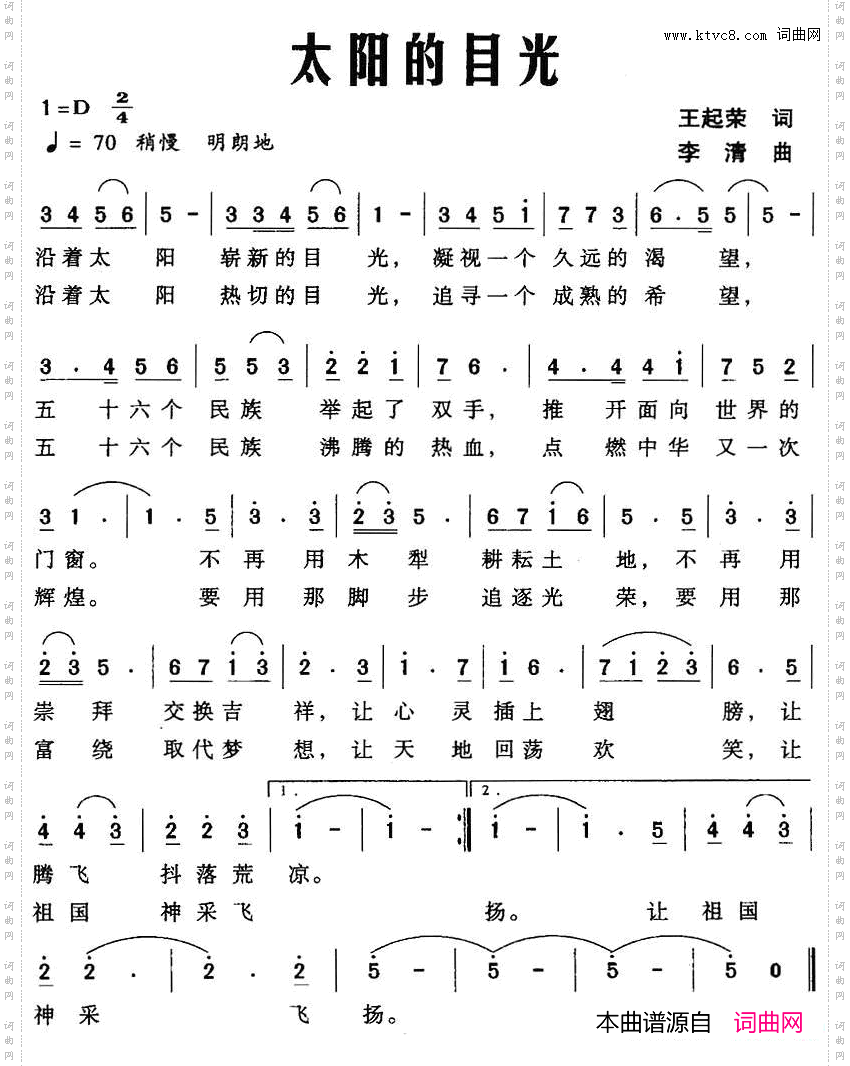 www.ktvc8.com 词曲网
太阳的目光
1=D 2/4
王起荣 词
♩= 70 稍慢 明朗地
李清 曲
3 4 5 6 | 5 - | 3 3 4 5 6 | 1 - | 3 4 5 i | 7 7 3 | 6 . 5 5 | 5 - |
沿着太 阳 崭新的目 光, 凝视一个 久远的 渴 望,
沿着太 阳 热切的目 光, 追寻一个 成熟的 希 望,
3 . 4 5 6 | 5 5 3 | 2 2 1 | 7 6 . | 4 . 4 4 i | 7 5 2 |
五 十六个 民族 举起了 双手, 推 开面向 世界的
五 十六个 民族 沸腾的 热血, 点 燃中华 又一次
3 1 . | 1 . 5 | 3 . 3 | 2 3 5 . | 6 7 i 6 | 5 . 5 | 3 . 3 |
门窗。 不 再 用 木 犁 耕耘土 地, 不 再 用
辉煌。 要 用 那 脚 步 追逐光 荣, 要 用 那
2 3 5 . | 6 7 i 3 | 2 . 3 | i . 7 | i 6 . | 7 i 2 3 | 6 . 5 |
崇 拜 交换吉 祥, 让 心 灵 插上 翅 膀, 让
富 绕 取代梦 想, 让 天 地 回荡 欢 笑, 让
1. 2.
4 4 3 | 2 2 3 | i - | i - :| i - | i . 5 | 4 4 3 |
腾飞 抖落荒 凉。
祖国 神采飞 扬。 让 祖国
2 2 . | 2 . 2 | 5 - | 5 - | 5 - | 5 0 ‖
神 采 飞 扬。
本曲谱源自 词曲网